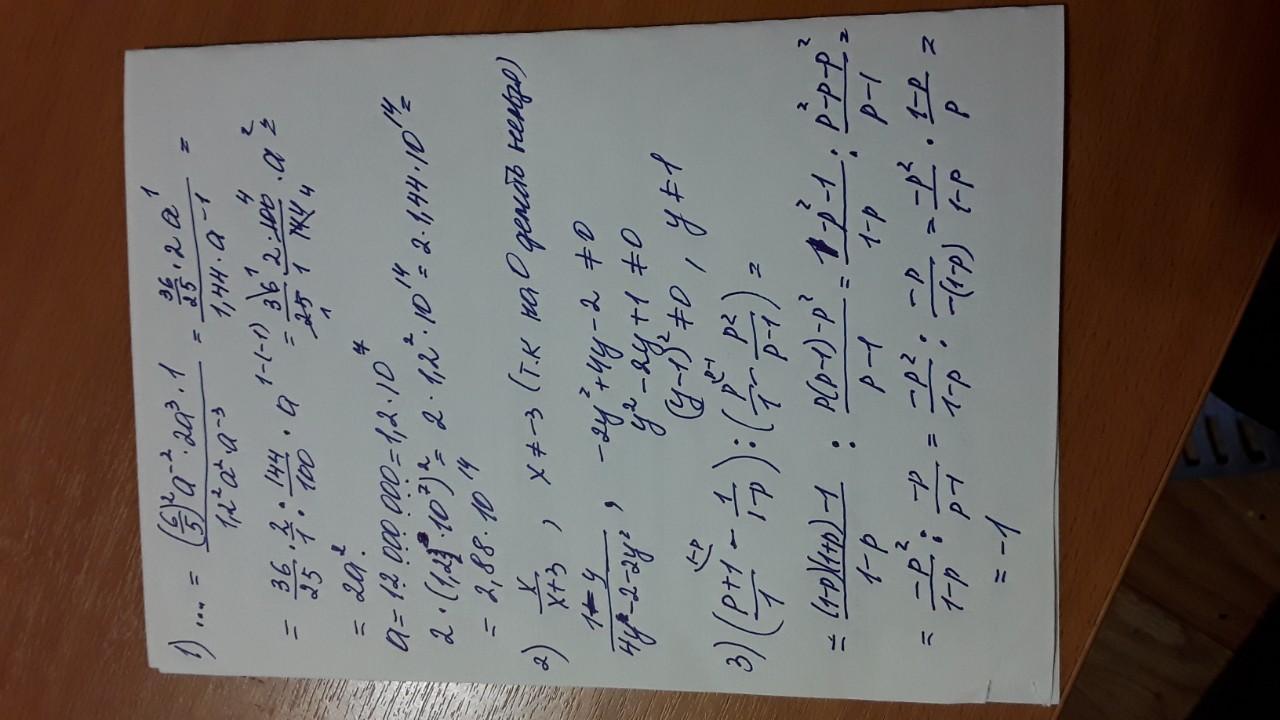 1) ... = ((6/5)² a⁻² · 2a³ · 1) / (1,2² a² · a⁻³) = (36/25 · 2a¹) / (1,44 · a⁻¹) =
= 36/25 · 2/1 : 144/100 · a¹⁻⁽⁻¹⁾ = 36/25 · (2 · 100)/(1 · 144) · a² =
= 2a².
a = 12 000 000 = 1,2 · 10⁷
2 · (1,2 · 10⁷)² = 2 · 1,2² · 10¹⁴ = 2 · 1,44 · 10¹⁴ =
= 2,88 · 10¹⁴
2) x/(x+3) , x ≠ -3 (т.к на 0 делить нельзя)
(1-y)/(4y-2-2y²) , -2y²+4y-2 ≠ 0
y²-2y+1 ≠ 0
(y-1)² ≠ 0 , y ≠ 1
3) ((p+1)/1 - 1/(1-p)) : (p/1 - p²/(p-1)) =
= ((1-p)(1+p)-1)/(1-p) : (p(p-1)-p²)/(p-1) = (1-p²-1)/(1-p) : (p²-p-p²)/(p-1) =
= -p²/(1-p) : -p/(p-1) = -p²/(1-p) : -p/(-(1-p)) = -p²/(1-p) · (1-p)/p =
= -1